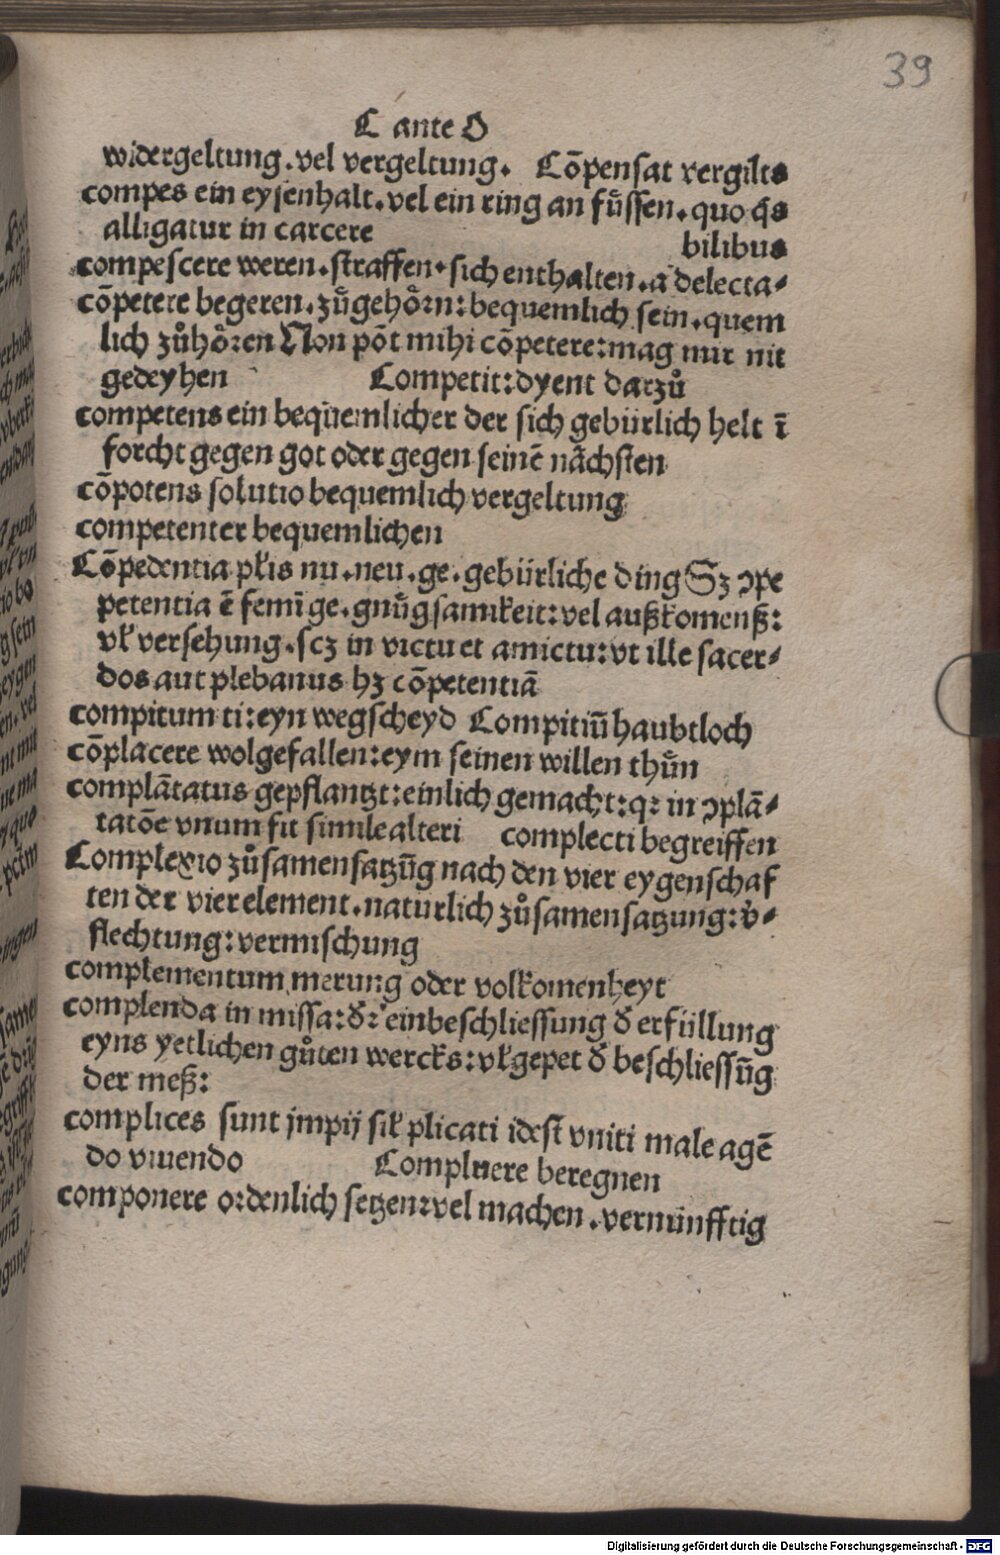 39
C ante O
widergeltung.vel vergeltung. Cōpensat vergilts
compes ein eysenhalt.vel ein ring an fuͤssen.quo q̄s
alligatur in carcere bilibus
compescere weren.straffen.sich enthalten.a delecta⸗
cōpetere begeren.zuͦgehoͤrn:bequemlich sein.quem
lich zuͦhoͤren Non pōt mihi cōpetere:mag mir nit
gedeyhen Competit:dyent darzuͦ
competens ein bequemlicher der sich gebürlich helt ī
forcht gegen got oder gegen seinē naͤchsten
cōpotens solutio bequemlich vergeltung
competenter bequemlichen
Cōpedentia pł̓is nu.neu.ge.gebürliche ding Sꝫ ↄpe
petentia ē femī ge.gnuͦgsamkeit:vel außkomenß:
vł versehung.scꝫ in victu et amictu:vt ille sacer⸗
dos aut plebanus hꝫ cōpetentiā
compitum ti:eyn wegscheyd Compitiū haubtloch
cōplacere wolgefallen:eym seinen willen thuͦn
complātatus gepflantzt:einlich gemacht:qꝛ in ↄplā⸗
tatōe vnum fit simile alteri complecti begreiffen
Complexio zuͦsamensatzūg nach den vier eygenschaf
ten der vier element.naturlich zuͦsamensatzung:v̓⸗
flechtung:vermischung
complementum merung oder volkomenheyt
complenda in missa:dꝛ̓ einbeschliessung d̓ erfüllung
eyns yetlichen guͦten wercks:vł gepet d̓ beschliessūg
der meß:
complices sunt jmpij sił plicati idest vniti male agē
do viuendo Compluere beregnen
componere ordenlich setzen:vel machen.vernünfftig
Digitalisierung gefördert durch die Deutsche Forschungsgemeinschaft - DFG